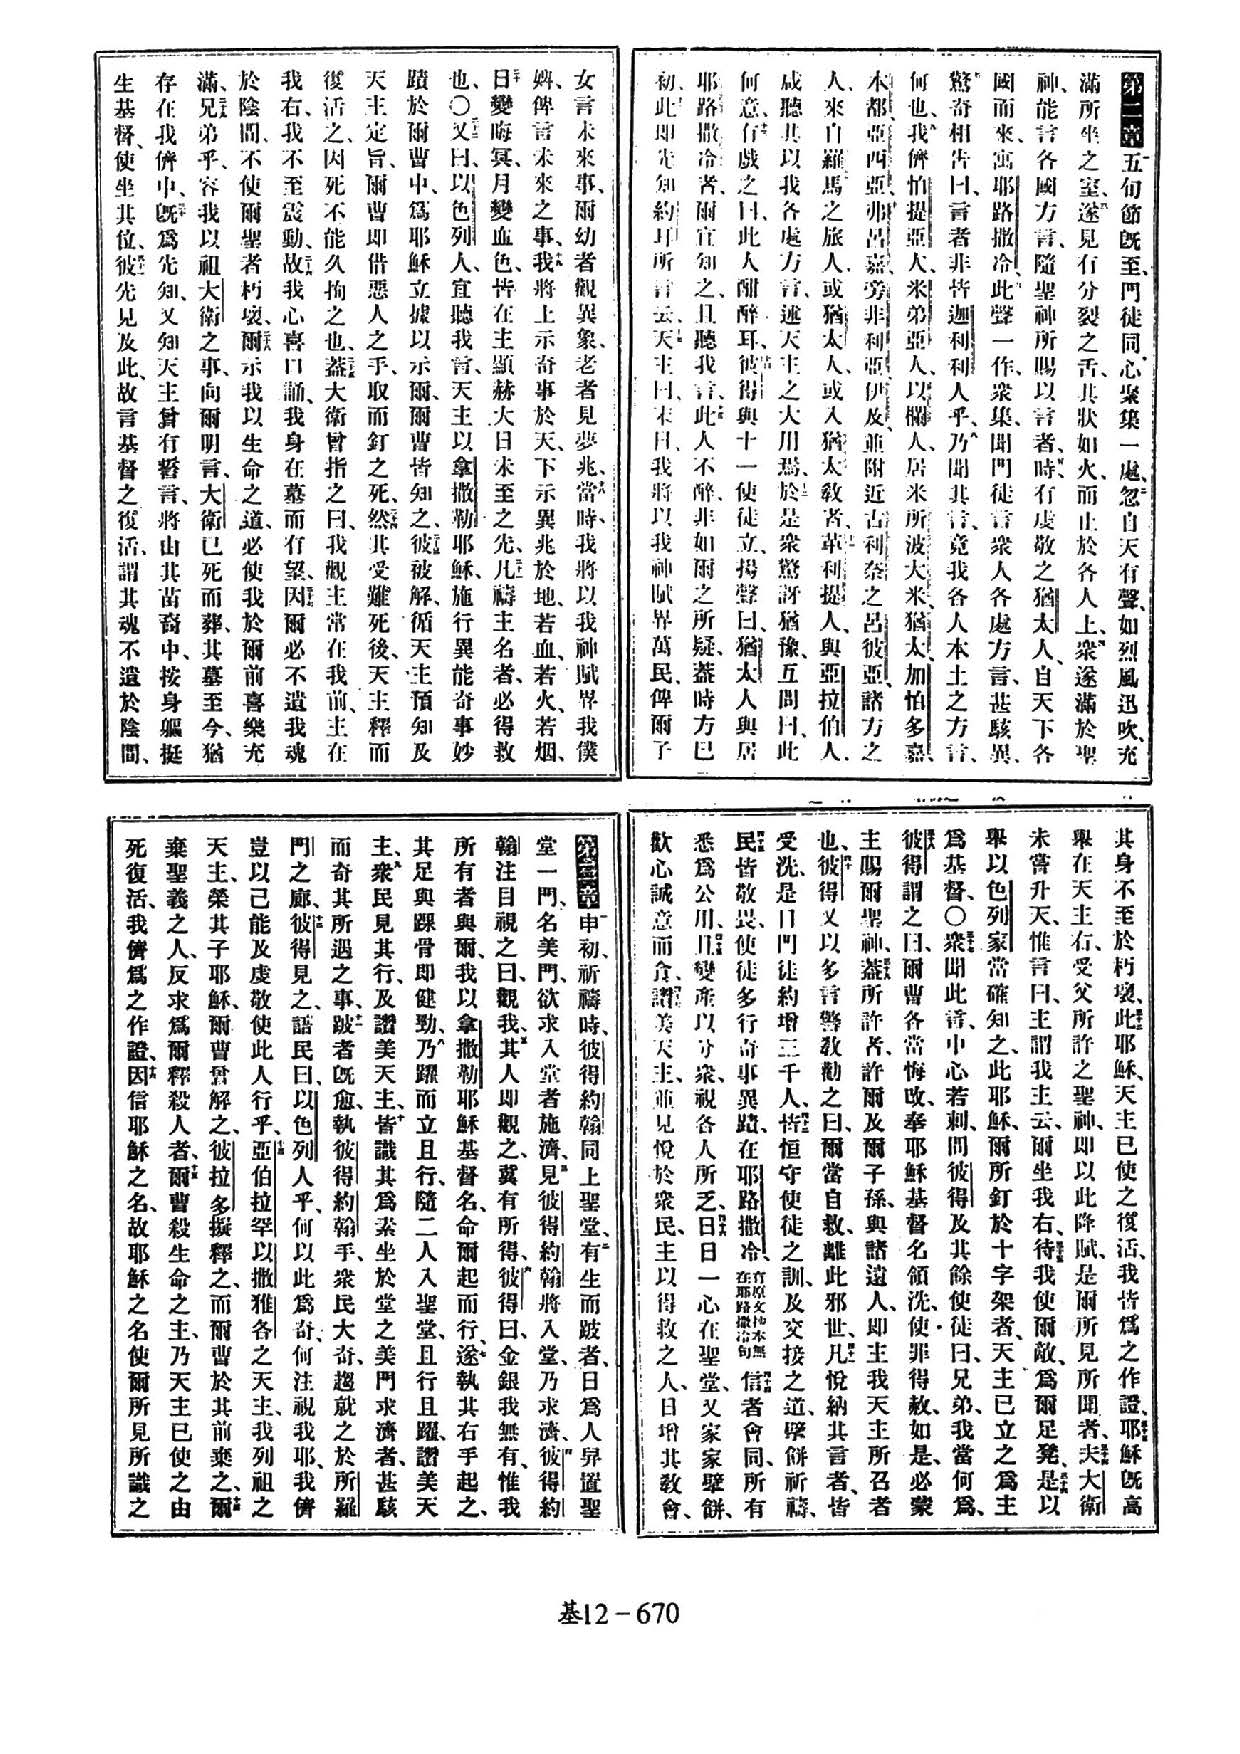 第二章五旬節旣至、門徒同心聚集一處、忽自天有聲、如烈風迅吹、充
滿所坐之室、遂見有分裂之舌、其狀如火、而止於各人上、衆遂滿於聖
神、能言各國方言、隨聖神所賜以言者、時有虔敬之猶太人、自天下各
國而來、寓耶路撒冷、此聲一作、衆集、聞門徒言衆人各處方言、甚駭異、
驚奇相吿曰、言者非皆迦利利人乎、乃聞其言、竟我各人本土之方言、
何也、我儕怕提亞人、米弟亞人、以攔人、居米所波大米、猶太、加怕多嘉、
本都、亞西亞、弗呂嘉、旁非利亞、伊及、並附近古利奈之呂彼亞諸方之
人、來自羅馬之旅人、或猶太人、或入猶太敎者、革利提人、與亞拉伯人、
咸聽其以我各處方言、述天主之大用焉、於是衆驚訝猶豫、互問曰、此
何意、有戲之曰、此人酣醉耳、彼得與十一使徒立、揚聲曰、猶太人與居
耶路撒冷者、爾宜知之、且聽我言、此人不醉、非如爾之所疑、蓋時方巳
初、此卽先知約耳所言云、天主曰、末日、我將以我神賦畀萬民、俾爾子
女言未來事、爾幼者觀異象、老者見夢兆、當時、我將以我神賦畀我僕
婢、俾言未來之事、我將上示奇事於天、下示異兆於地、若血、若火、若烟、
日變晦冥、月變血色、皆在主顯赫大日未至之先、凡禱主名者、必得救
也、〇又曰、以色列人、宜聽我言、天主以拿撒勒耶穌、施行異能奇事妙
蹟於爾曹中、爲耶穌立據以示爾、爾曹皆知之、彼被解、循天主預知及
天主定旨、爾曹卽借惡人之手、取而釘之死、然其受難死後、天主釋而
復活之、因死不能久拘之也、蓋大衛曾指之曰、我觀主常在我前、主在
我右、我不至震動、故我心喜口誦、我身在墓而有望、因爾必不遺我魂
於陰間、不使爾聖者朽壞、爾示我以生命之道、必使我於爾前喜樂充
滿、兄弟乎、容我以祖大衛之事、向爾明言、大衛已死而葬、其墓至今、猶
存在我儕中、旣爲先知、又知天主曾有誓言、將由其苗裔中、按身軀挺
生基督、使坐其位、彼先見及此、故言基督之復活、謂其魂不遺於陰間、
其身不至於朽壞、此耶穌、天主已使之復活、我皆爲之作證、耶穌旣高
舉在天主右、受父所許之聖神、卽以此降賦、是爾所見所聞者、夫大衛
未嘗升天、惟言曰、主謂我主云、爾坐我右、待我使爾敵、爲爾足凳、是以
舉以色列家當確知之、此耶穌、爾所釘於十字架者、天主已立之爲主
爲基督、〇衆聞此言、中心若刺、問彼得及其餘使徒曰、兄弟、我當何爲、
彼得謂之曰、爾曹各當悔改、奉耶穌基督名領洗、使罪得赦、如是、必蒙
主賜爾聖神、蓋所許者、許爾及爾子孫、與諸遠人、卽主我天主所召者
也、彼得又以多言警敎勸之曰、爾當自救、離此邪世、凡悅納其言者、皆
受洗、是日門徒約增三千人、皆恒守使徒之訓、及交接之道、擘餅祈禱、
民皆敬畏、使徒多行奇事異蹟、在耶路撒冷、有原文抄本無在耶路撒冷句信者會同、所有
悉爲公用、且變產以分衆、視各人所乏、日日一心在聖堂、又家家擘餅、
歡心誠意而食、讚美天主、並見悅於衆民、主以得救之人、日增其敎會、
第三章申初、祈禱時、彼得約翰同上聖堂、有生而跛者、日爲人舁置聖
堂一門、名美門、欲求入堂者施濟、見彼得約翰將入堂、乃求濟、彼得約
翰注目視之曰、觀我、其人卽觀之、冀有所得、彼得曰、金銀我無有、惟我
所有者與爾、我以拿撒勒耶穌基督名、命爾起而行、遂執其右手起之、
其足與踝骨卽健勁、乃躍而立且行、隨二人入聖堂、且行且躍、讚美天
主、衆民見其行、及讚美天主、皆識其爲素坐於堂之美門求濟者、甚駭
而奇其所遇之事、跛者旣愈、執彼得約翰手、衆民大奇、趨就之於所羅
門之廊、彼得見之、語民曰、以色列人乎、何以此爲奇、何注視我耶、我儕
豈以己能及虔敬使此人行乎、亞伯拉罕以撒雅各之天主、我列祖之
天主、榮其子耶穌、爾曹曾解之、彼拉多擬釋之、而爾曹於其前棄之、爾
棄聖義之人、反求爲爾釋殺人者、爾曹殺生命之主、乃天主已使之由
死復活、我儕爲之作證、因信耶穌之名、故耶穌之名使爾所見所識之
基12-670